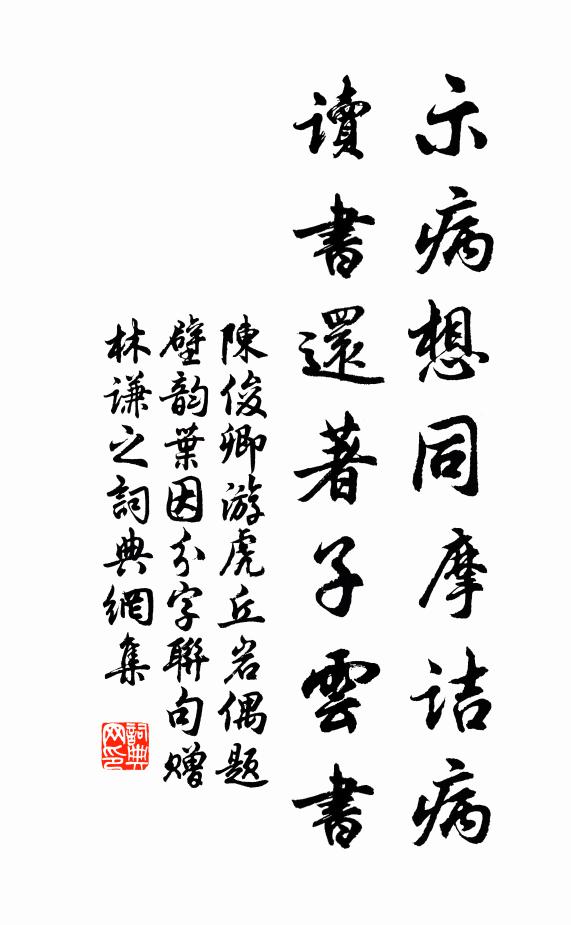 示病想同摩詰病
讀書還著子雲書
陳俊卿游虎丘岩偶題
壁韵葉因分字聯句赠
林谦之詞典網集
詞典网印